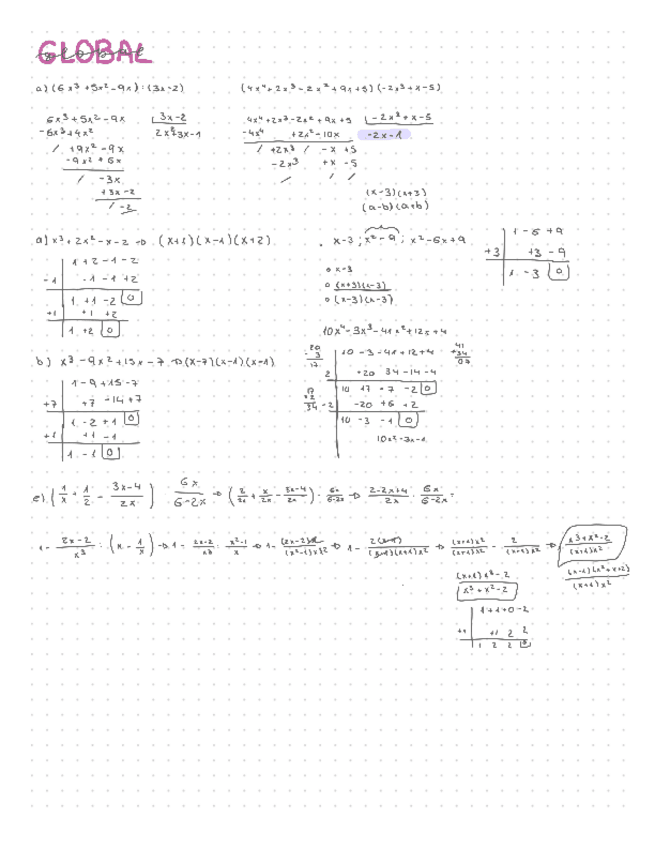 GLOBAL
a) (6x³ + 5x² - 9x) : (3x-2)
(4x⁴ + 2x³ - 2x² + 9x + 5) (-2x³ + x - 5)
6x³ + 5x² - 9x | 3x-2
-6x³ + 4x² 2x² + 3x - 1
/ +9x² - 9x
-9x² + 6x
/ -3x
+3x - 2
/ -2
4x⁴ + 2x³ - 2x² + 9x + 5 | -2x³ + x - 5
-4x⁴ +2x² - 10x -2x - 1
/ +2x³ / -x +5
-2x³ +x -5
/ / /
(x-3)(x+3)
(a-b)(a+b)
a) x³ + 2x² - x - 2 => (x+1)(x-1)(x+2)
1 +2 -1 -2
-1 | -1 -1 +2
1 +1 -2 | 0
+1 | +1 +2
1 +2 | 0
. x-3 ; x² - 9 ; x² - 6x + 9
o x-3
o (x+3)(x-3)
o (x-3)(x-3)
1 -6 +9
+3 | +3 -9
1 -3 | 0
b) x³ - 9x² + 15x - 7 => (x-7)(x-1)(x-1)
1 -9 +15 -7
+7 | +7 -14 +7
1 -2 +1 | 0
+1 | +1 -1
1 -1 | 0
10x⁴ - 3x³ - 41x² + 12x + 4
20
3
17
10 -3 -41 +12 +4
2 | +20 34 -14 -4
41
34
07
10 17 -7 -2 | 0
17
2
34
-2 | -20 +6 +2
10 -3 -1 | 0
10x² - 3x - 1
e) (1/x + 1/2 - 3x-4/2x) 6x/6-2x => (2/2x + x/2x - 3x-4/2x) · 6x/6-2x => 2-2x+4/2x · 6x/6-2x =
1 - 2x-2/x³ : (x - 1/x) => 1 - 2x-2/x³ · x²-1/x => 1 - (2x-2)x/(x²-1)x³ => 1 - 2(x-1)/(x-1)(x+1)x² => (x+1)x²/(x+1)x² - 2/(x+1)x² => x³+x²-2/(x+1)x²
(x+1)x² - 2
x³ + x² - 2
(x-1)(x²+x+2)/(x+1)x²
1 +1 +0 -2
+1 | +1 2 2
1 2 2 | 0